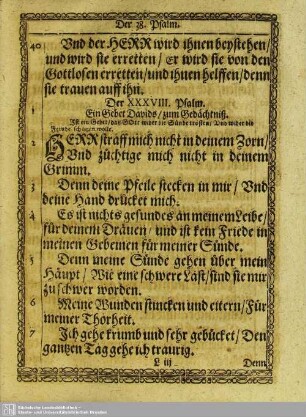 Der 38. Psalm.
40 Vnd der HERR wird ihnen beystehen/
und wird sie erretten/ er wird sie von den
Gottlosen erretten/ und ihnen helffen/ denn
sie trauen auff ihn.
Der XXXVIII. Psalm.
Ein Gebet Davids/ zum Gedächtniß.
Ist ein Gebet/ daß GOtt wider die Sünde
2 HERR straff mich nicht in deinem Zorn/
Vnd züchtige mich nicht in deinem
Grimm.
3 Denn deine Pfeile stecken in mir/ Vnd
deine Hand drücket mich.
4 Es ist nichts gesundes an meinem Leibe/
für deinem Dräuen/ und ist kein Friede in
meinen Gebeinen für meiner Sünde.
5 Denn meine Sünde gehen über mein
Häupt/ Wie eine schwere Last/ sind sie mir
zu schwer worden.
6 Meine Wunden stincken und eitern/ Für
meiner Thorheit.
7 Ich gehe krumb und sehr gebücket/ Den
gantzen Tag gehe ich traurig.
L iij Denn